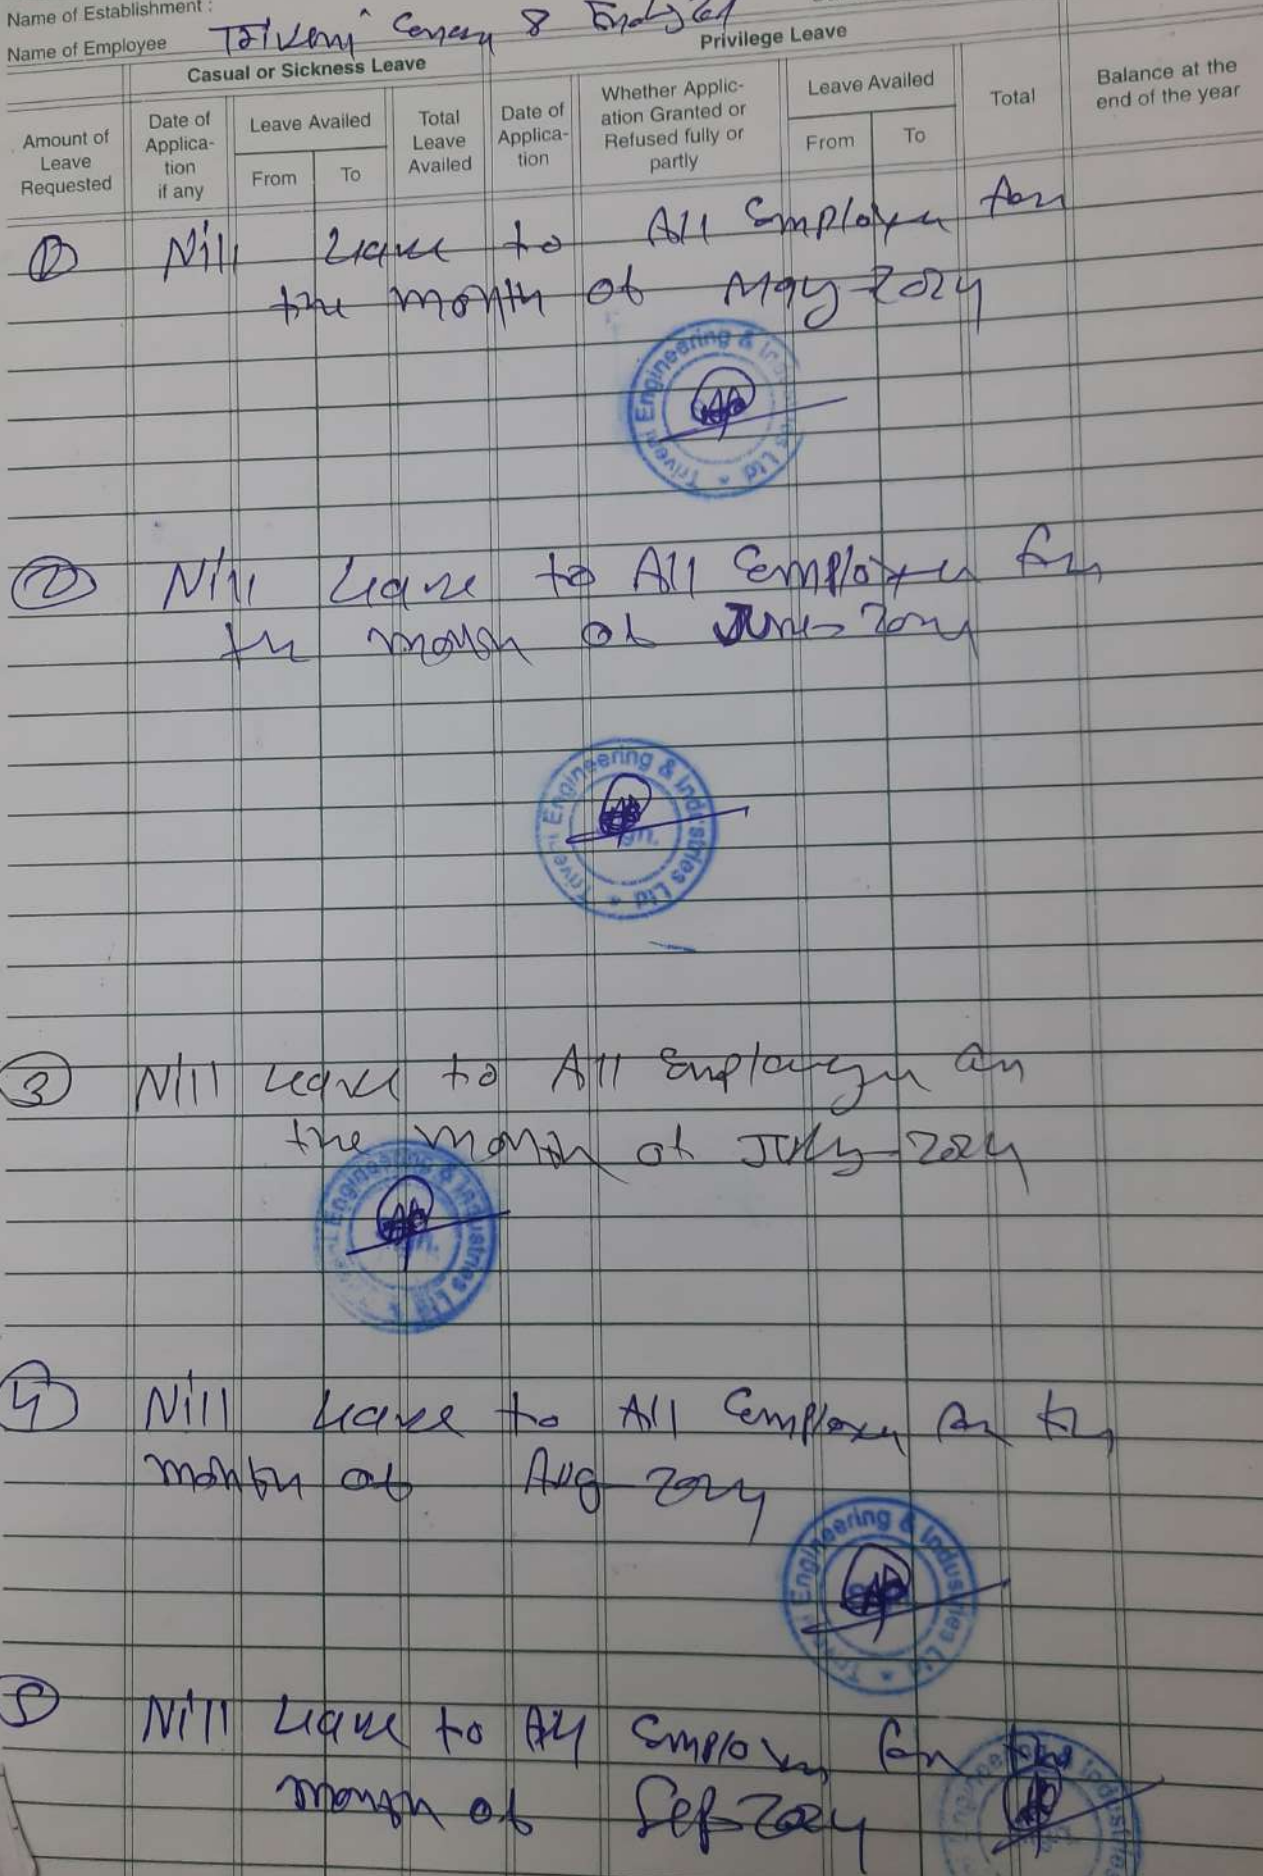 Name of Establishment :
Name of Employee Triveni & 
Casual or Sickness Leave
Privilege Leave
Amount of Leave Requested
Date of Applica-tion if any
Leave Availed
From
To
Total Leave Availed
Date of Applica-tion
Whether Applic-ation Granted or Refused fully or partly
Leave Availed
From
To
Total
Balance at the end of the year
① Nill Leave to All Employee for
the month of May-2024
Triveni Engineering & Industries Ltd *
② Nill Leave to All Employee for
the month of June-2024
Triveni Engineering & Industries Ltd *
③ Nill Leave to All Employee for
the month of July-2024
Triveni Engineering & Industries Ltd *
④ Nill Leave to All Employee for the
month of Aug-2024
Triveni Engineering & Industries Ltd *
⑤ Nill Leave to All Employee for the
month of Sep-2024
Engineering & Industries